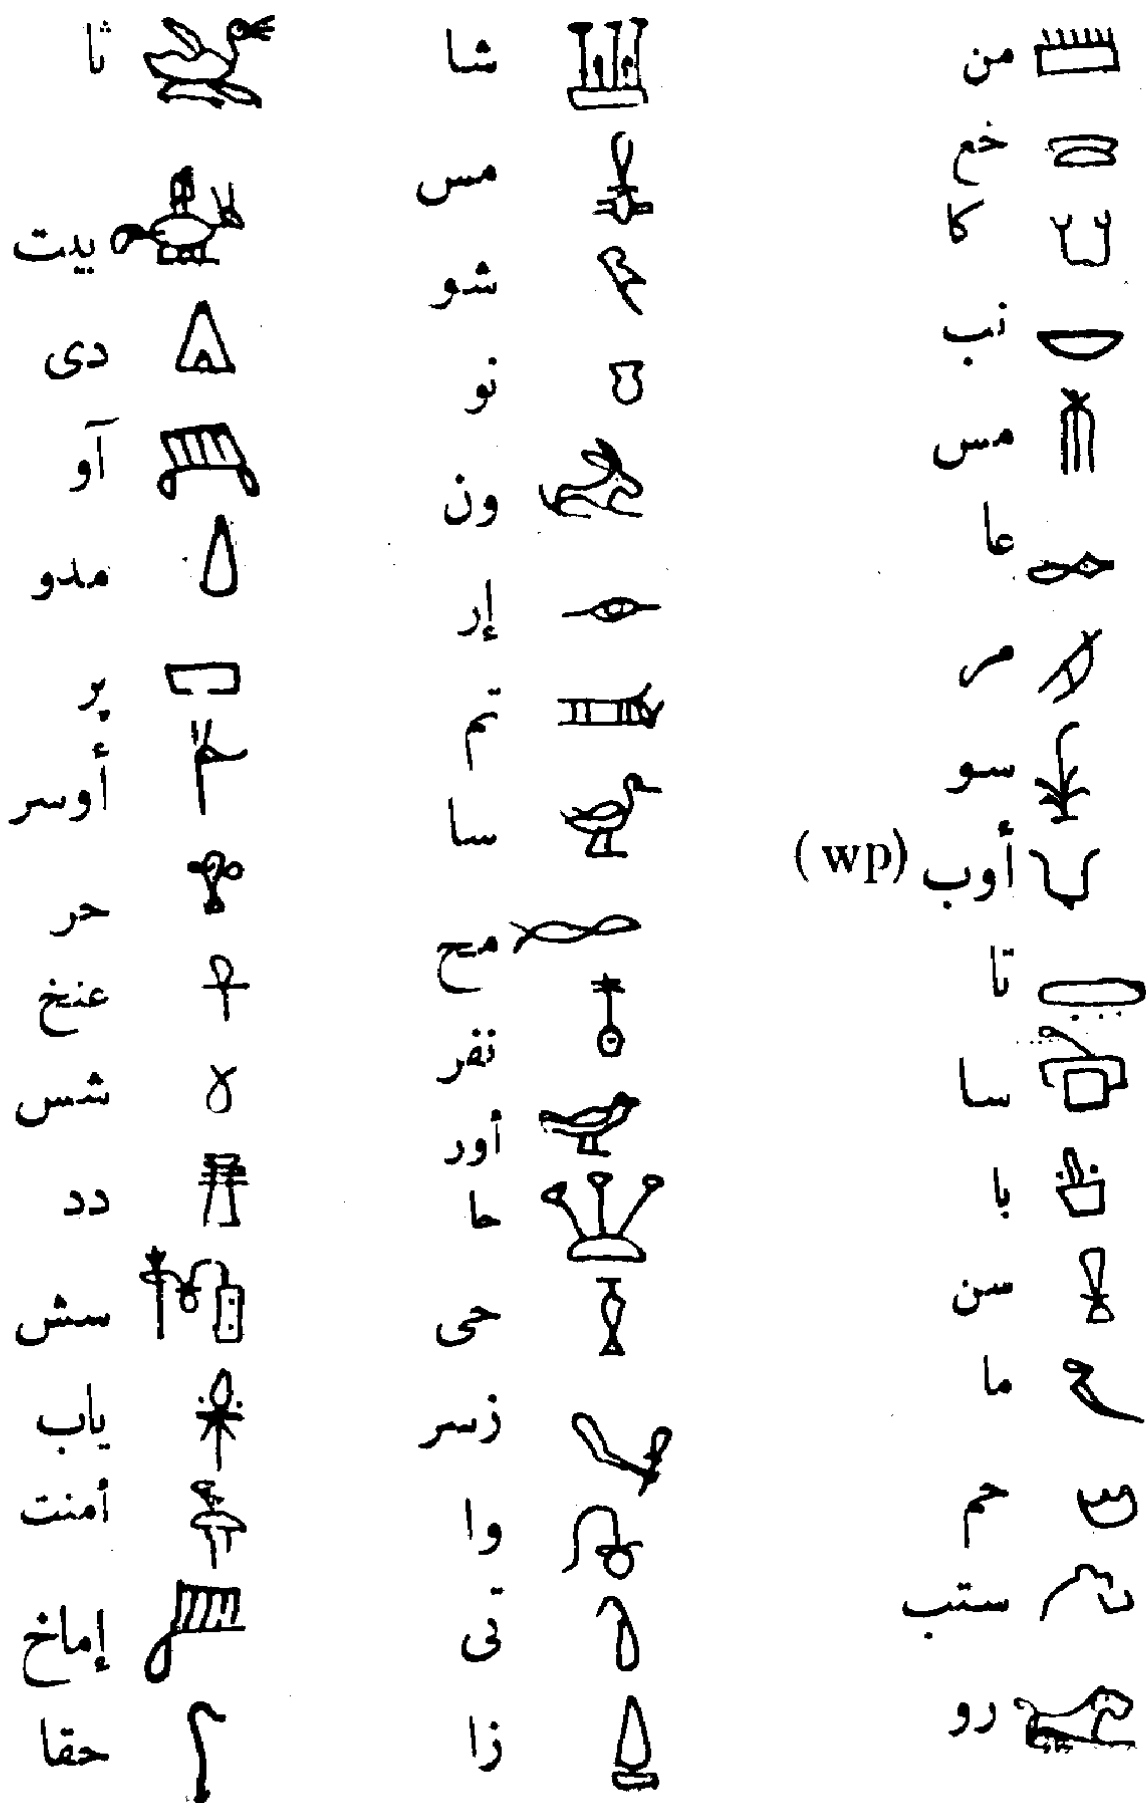 من
خع
كا
نب
مس
عا
مر
سو
أوب (wp)
تا
سا
با
سن
ما
حم
ستب
رو
شا
مس
شو
نو
ون
إر
تم
سا
مح
نفر
أور
حا
حى
زسر
وا
تى
زا
ثا
بيت
دى
آو
مدو
پر
أوسر
حر
عنخ
شس
دد
سش
ياب
أمنت
إماخ
حقا